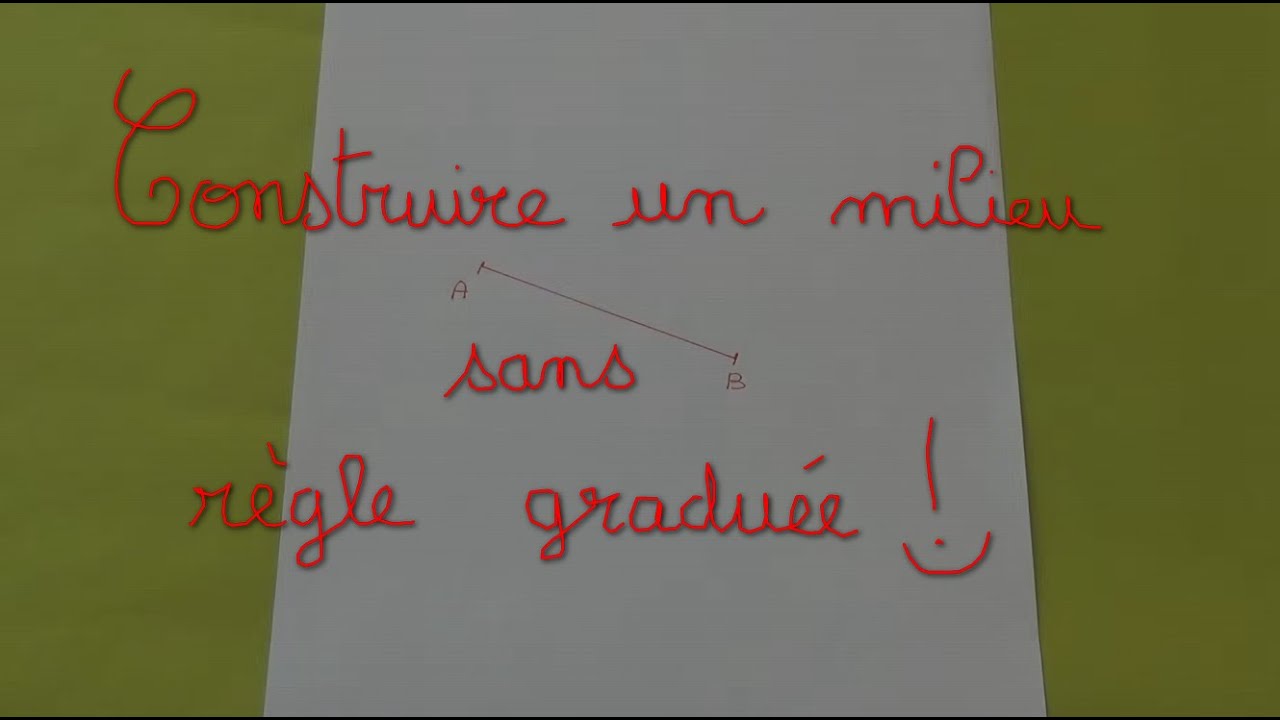 Construire un milieu
A
sans
B
règle graduée !